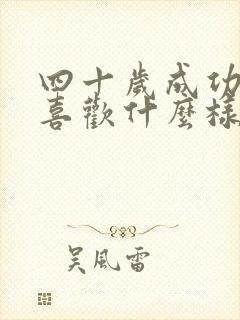 四十歲成功
喜歡什麼樣
吳風雷